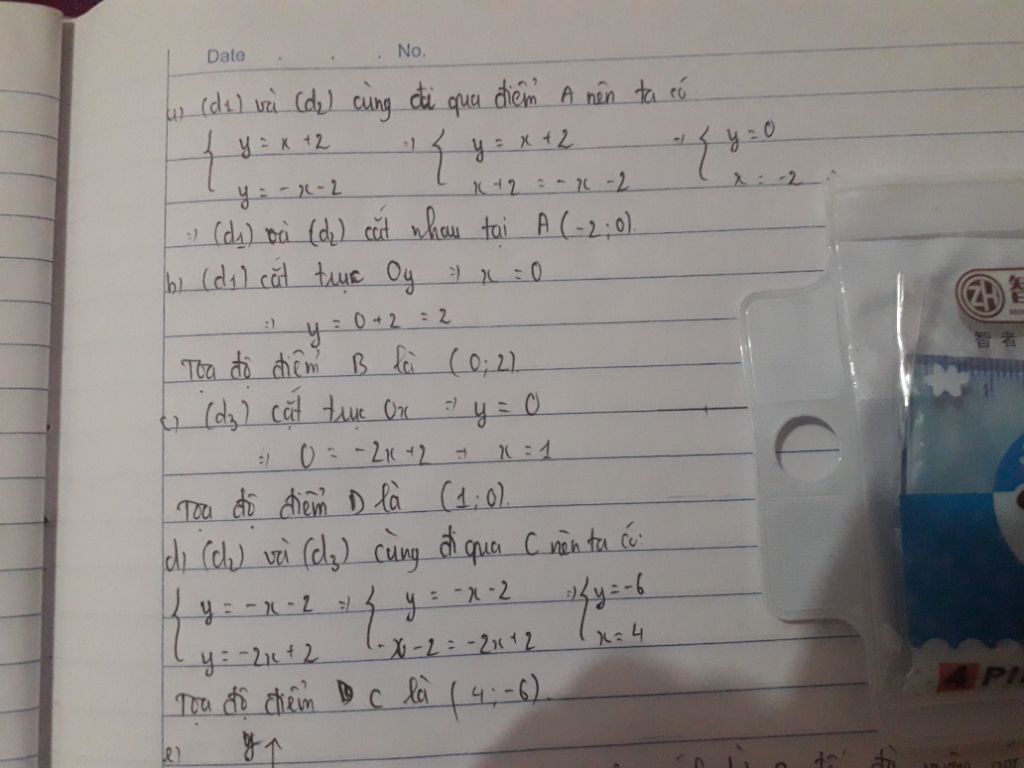 Date . . . No.
a) (d1) và (d2) cùng đi qua điểm A nên ta có
{ y = x + 2 => { y = x + 2 => { y = 0
y = -x - 2 x + 2 = -x - 2 x = -2
=> (d1) và (d2) cắt nhau tại A (-2; 0).
b) (d1) cắt trục Oy => x = 0
=> y = 0 + 2 = 2
Tọa độ điểm B là (0; 2).
c) (d3) cắt trục Ox => y = 0
=> 0 = -2x + 2 → x = 1
Tọa độ điểm D là (1; 0).
d) (d2) và (d3) cùng đi qua C nên ta có:
{ y = -x - 2 => { y = -x - 2 => { y = -6
y = -2x + 2 -x - 2 = -2x + 2 x = 4
Tọa độ điểm C là (4; -6).
e) y ↑
ZH 智
智者
1
4 PI